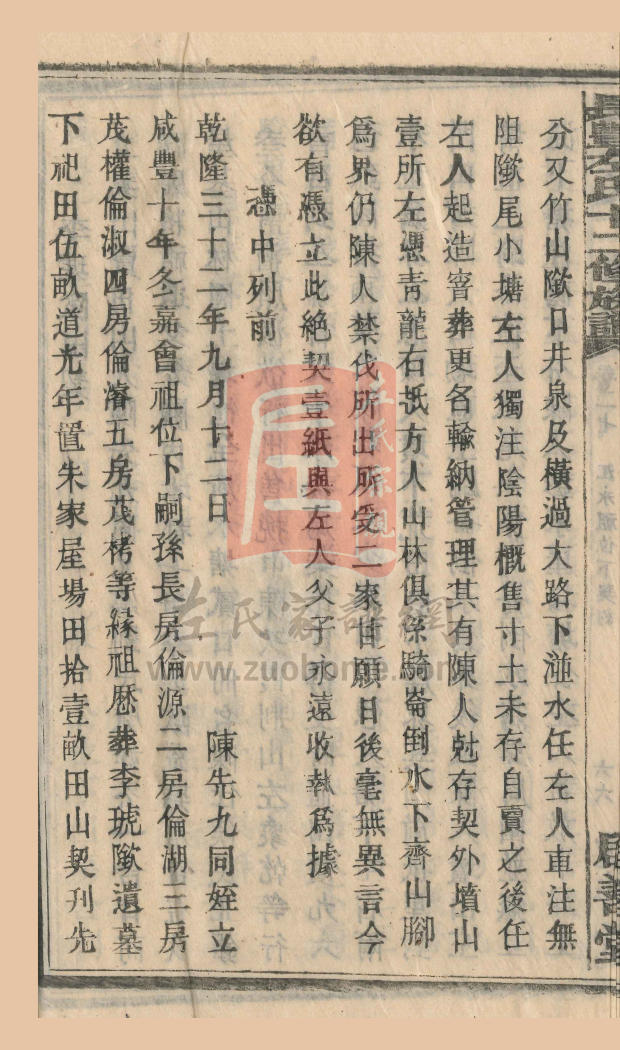 長豐左氏十二修族譜
卷二七
六六
居善堂
分又竹山墩口井泉及橫過大路下湴水任左人車注無
阻墩尾小塘左人獨注陰陽概售寸土未存自賣之後任
左人起造窨葬更名輸納管理其有陳人尅存契外墳山
壹所左憑靑龍右抵方人山林俱係騎崙倒水下齊山腳
爲界仍陳人禁伐所出所受二家甘願日後毫無異言今
欲有憑立此絕契壹紙與左人父子永遠收執爲據
憑中列前
乾隆三十二年九月十二日 陳先九同姪立
咸豐十年冬嘉會祖位下嗣孫長房倫源二房倫湖三房
茂權倫淑四房倫濬五房茂栲等緣祖歷葬李琥墩遺墓
下祀田伍畝道光年置朱家屋場田拾壹畝田山契刊先
左氏宗親
左氏家譜網
www.zuobome.com